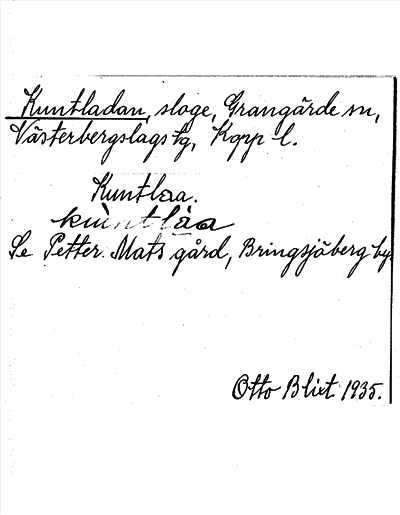 Kuntladan, sloge, Grangärde sn,
Västerbergslags tg, Kopp l.
Kuntlaa.
kùntlàa
Se Petter Mats gård, Bringsjöberg by.
Otto Blixt 1935.